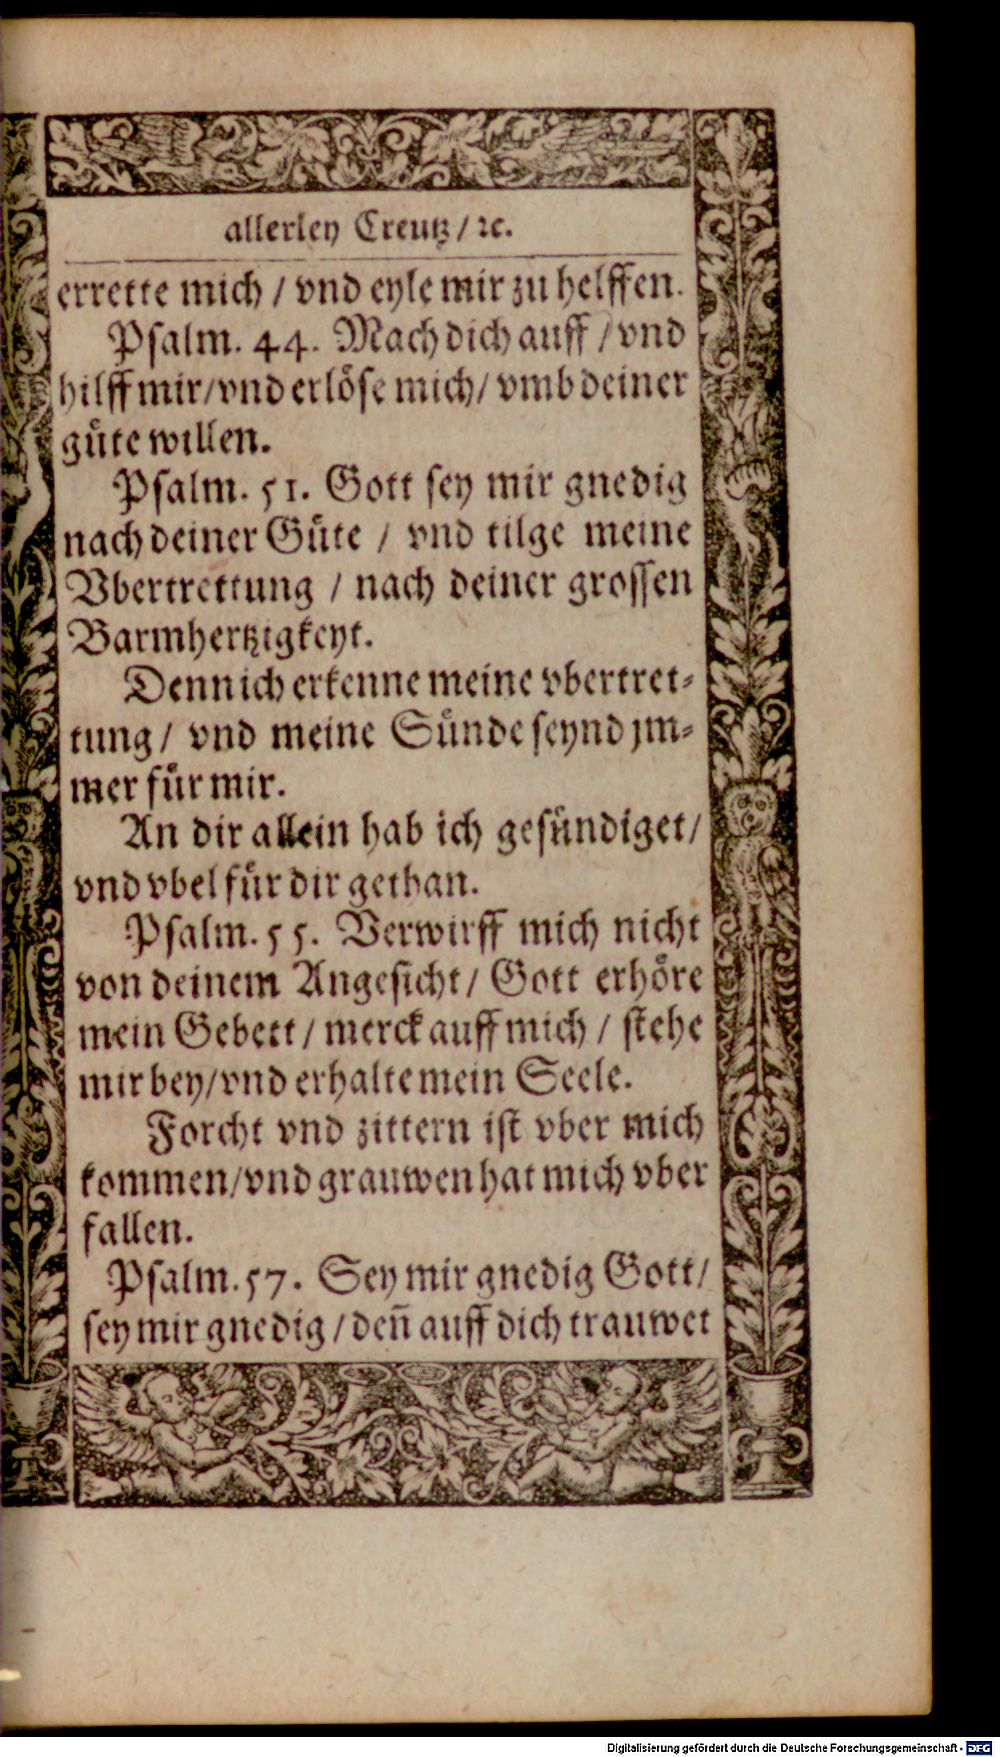 allerley Creutz / ꝛc.
errette mich / vnd eyle mir zu helffen.
Psalm. 44. Mach dich auff / vnd
hilff mir/vnd erlöse mich/ vmb deiner
gůte willen.
Psalm. 51. Gott sey mir gnedig
nach deiner Gůte / vnd tilge meine
Vbertrettung / nach deiner grossen
Barmhertzigkeyt.
Denn ich erkenne meine vbertret-
tung / vnd meine Sünde seynd jm-
mer für mir.
An dir allein hab ich gesündiget/
vnd vbel für dir gethan.
Psalm. 55. Verwirff mich nicht
von deinem Angesicht/ Gott erhöre
mein Gebett / merck auff mich / stehe
mir bey/vnd erhalte mein Seele.
Forcht vnd zittern ist vber mich
kommen/vnd grauwen hat mich vber
fallen.
Psalm. 57. Sey mir gnedig Gott/
sey mir gnedig / deñ auff dich trauwet
Digitalisierung gefördert durch die Deutsche Forschungsgemeinschaft - DFG